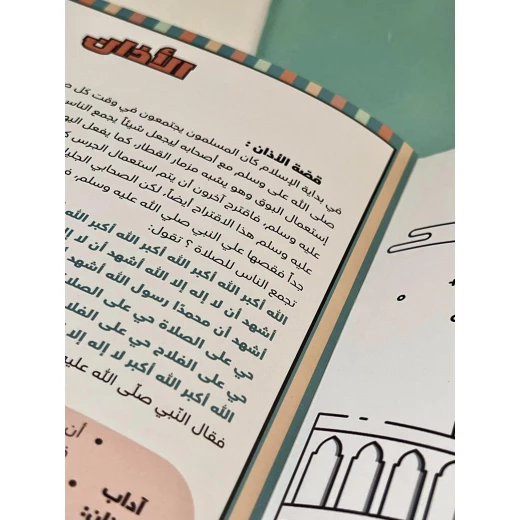 الأذان
قصة الأذان :
في بداية الإسلام كان المسلمون يجتمعون في وقت كل
صلى الله علي وسلم مع أصحابه ليجعل شيئاً يجمع الناس
إستعمال البوق وهو يشبه مزمار القطار، كما يفعل اليهو
عليه وسلم، فاقترح آخرون أن يتم استعمال الجرس
عليه وسلم هذا الاقتراح أيضاً، لكن الصحابي الجليل
جداً فقصها على النبي صلي الله عليه وسلم،
تجمع الناس للصلاة ؟ تقول:
الله أكبر الله أكبر الله أكبر الله أكبر
أشهد أن لا إله إلا الله أشهد أن لا
أشهد أن محمدًا رسول الله أشهد
حي على الصلاة حي على الصلا
حي على الفلاح حي على الفلا
الله أكبر الله أكبر لا إله إلا
فقال النّبي صلّى الله عليه
أن
آداب